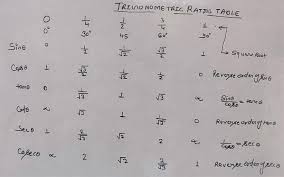 TRIGONOMETRIC RATIO TABLE
0 1/4 1/2 3/4 1
0° 30° 45 60° 90° → Square Root
Sinθ 0 1/2 1/√2 √3/2 1
Cosθ 1 √3/2 1/√2 1/2 0 Reverse order of sinθ
tanθ 0 1/√3 1 √3 ∝ Sinθ/Cosθ = tanθ
Cotθ ∝ √3 1 1/√3 0 Reverse order of tanθ
Secθ 1 2/√3 √2 2 ∝ 1/Cosθ = secθ
Cosecθ ∝ 2 √2 2/√3 1 Reverse order of secθ